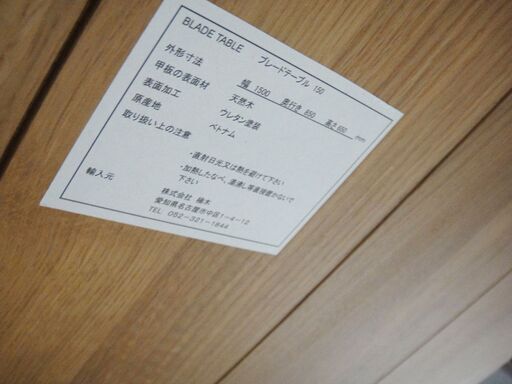 BLADE TABLE ブレードテーブル 150
外形寸法 幅 1500 奥行き 850 高さ 650 mm
甲板の表面材 天然木
表面加工 ウレタン塗装
原産地 ベトナム
取り扱い上の注意
・直射日光又は熱を避けて下さい
・加熱したなべ、湯沸し等直接置かないで
下さい
輸入元 株式会社 椿木
愛知県名古屋市中区1-4-12
TEL 052-321-1844